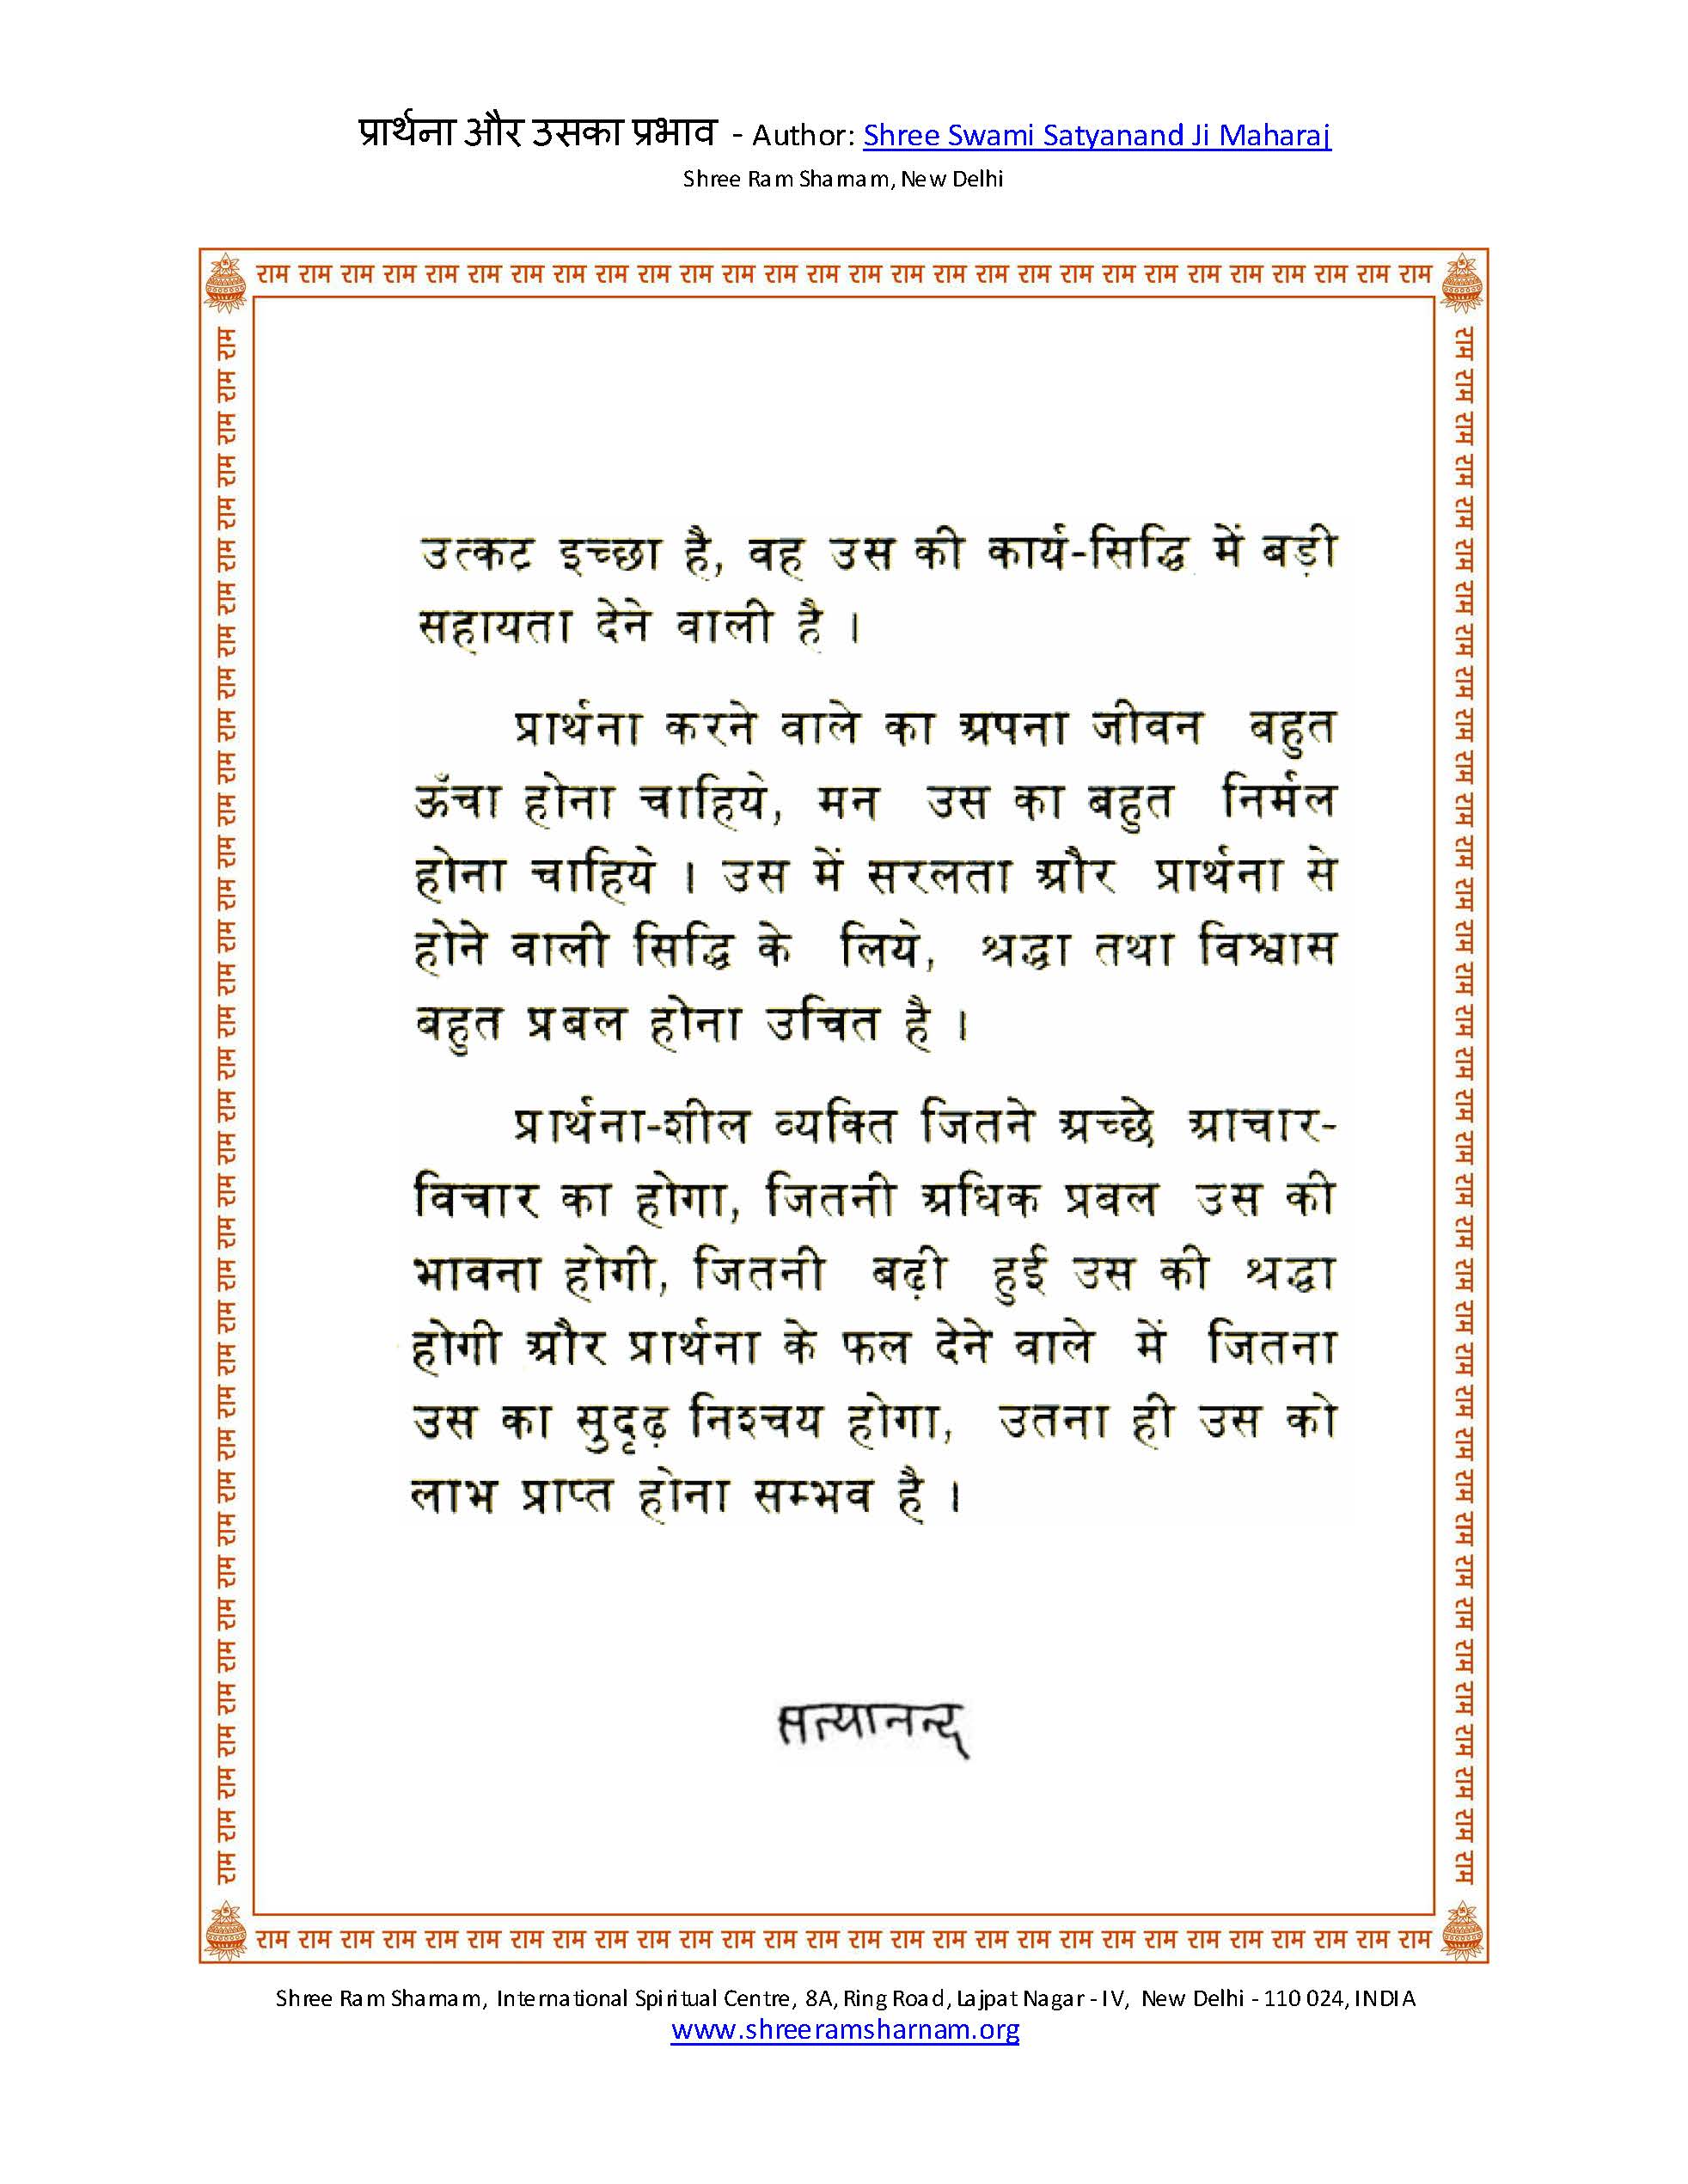 प्रार्थना और उसका प्रभाव - Author: Shree Swami Satyanand Ji Maharaj
Shree Ram Sharnam, New Delhi
राम राम राम राम राम राम राम राम राम राम राम राम राम राम राम राम राम राम राम राम राम राम राम राम राम राम राम राम
राम राम राम राम राम राम राम राम राम राम राम राम राम राम राम राम राम राम राम राम राम राम राम राम राम राम राम राम राम राम राम राम राम राम राम राम राम
उत्कट इच्छा है, वह उस की कार्य-सिद्धि में बड़ी
सहायता देने वाली है ।
प्रार्थना करने वाले का अपना जीवन बहुत
ऊँचा होना चाहिये, मन उस का बहुत निर्मल
होना चाहिये । उस में सरलता और प्रार्थना से
होने वाली सिद्धि के लिये, श्रद्धा तथा विश्वास
बहुत प्रबल होना उचित है ।
प्रार्थना-शील व्यक्ति जितने अच्छे आचार-
विचार का होगा, जितनी अधिक प्रबल उस की
भावना होगी, जितनी बढ़ी हुई उस की श्रद्धा
होगी और प्रार्थना के फल देने वाले में जितना
उस का सुदृढ़ निश्चय होगा, उतना ही उस को
लाभ प्राप्त होना सम्भव है ।
सत्यानन्द
राम राम राम राम राम राम राम राम राम राम राम राम राम राम राम राम राम राम राम राम राम राम राम राम राम राम राम राम राम राम राम राम राम राम राम राम राम
राम राम राम राम राम राम राम राम राम राम राम राम राम राम राम राम राम राम राम राम राम राम राम राम राम राम राम राम
Shree Ram Sharnam, International Spiritual Centre, 8A, Ring Road, Lajpat Nagar - IV, New Delhi - 110 024, INDIA
www.shreeramsharnam.org